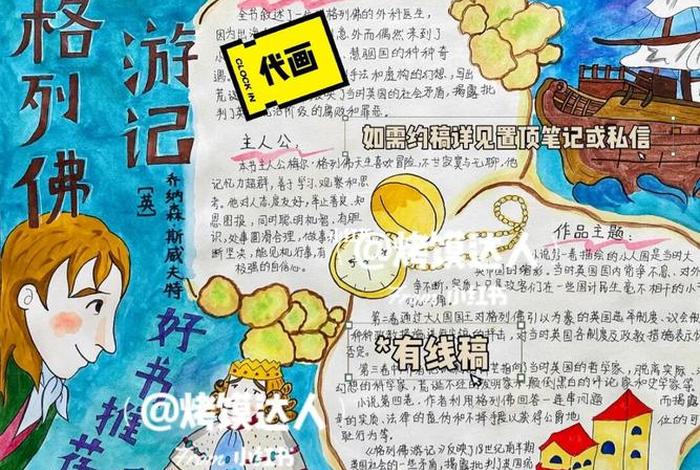 格列佛
游记
[英]
乔纳森·斯威夫特
好书推荐
全书叙述了一
格列佛的外科医生，
意外而偶然来到了
慧骃国的种种奇
手法和虚构的幻想，写出
了当时英国的社会矛盾，揭露批
的腐败和罪恶。
CLOCK IN
代画
主人公：
如需约稿详见置顶笔记或私信
格列佛天生喜欢冒险，不甘寂寞与无聊，他
记忆力超群，善于学习、观察和思
考。他对人态度友好，举止善良，知
恩图报，同时聪明机智，有胆
识，处事圆滑合理，做事
断坚决，能见机行事，有
极强的自信心。
作品主题：
@烤馍达人
From 小红书
小说第一卷描绘的小人国是当时大
英帝国的缩影。当时英国国内党争不息，对外
争不断，实质上只是政客们在一些国计民生毫不相干的小
第二卷通过大人国国王对格列佛引以为豪的英国选举制度、议会制
的抨击，对当时英国各制度及政教措施表
否定。
*有线稿
第三卷
指向了当时英国的哲学家，脱离实际、
幻想的科学家，荒诞不经的发明家和颠倒黑白的评论家和史学家等
小说第四卷，作者利用格列佛回答一连串问题
而揭露
的实质、法律的虚伪和不择手段以获得公爵地
位的可
耻行为等。
@烤馍达人
From 小红书
《格列佛游记》反映了18世纪前半期
英国社会的一些矛盾，揭露批判了英国